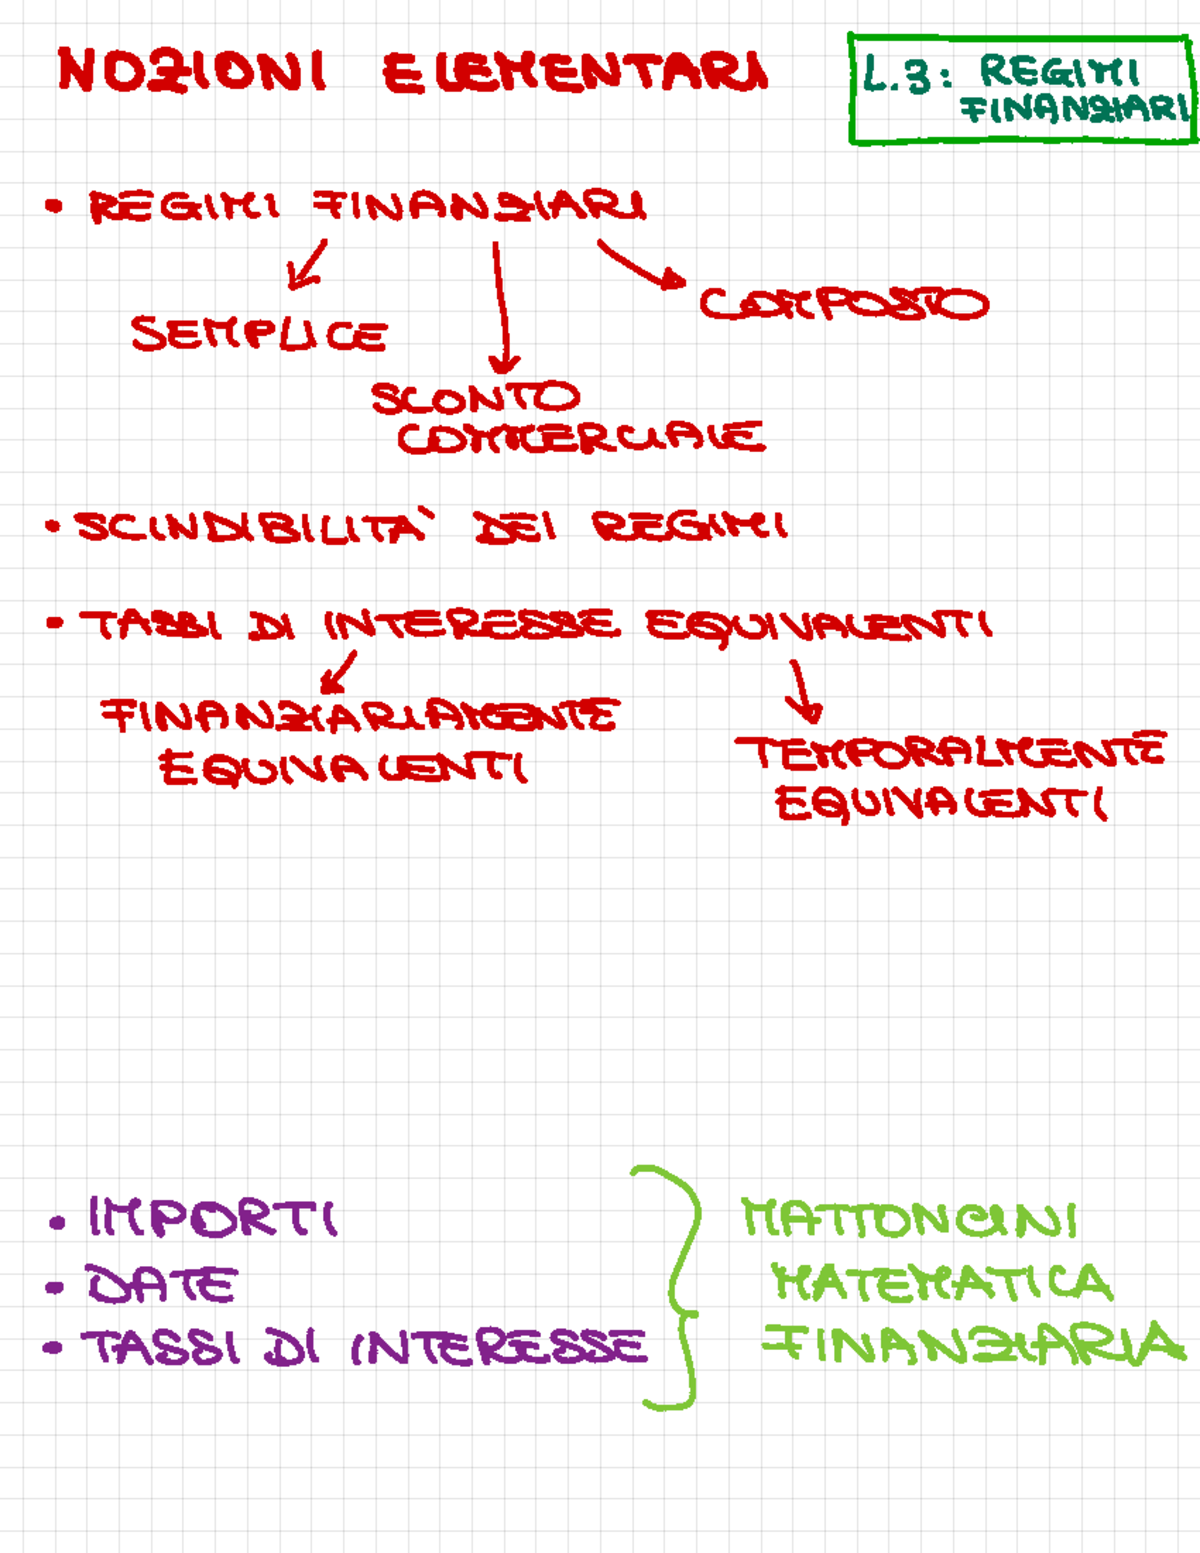 NOZIONI ELEMENTARI
L.3: REGIMI
FINANZIARI
• REGIMI FINANZIARI
SEMPLICE
COMPOSTO
SCONTO
COMMERCIALE
• SCINDIBILITA' DEI REGIMI
• TASSI DI INTERESSE EQUIVALENTI
FINANZIARIAMENTE
EQUIVALENTI
TEMPORALMENTE
EQUIVALENTI
• IMPORTI
• DATE
• TASSI DI INTERESSE
MATTONCINI
MATEMATICA
FINANZIARIA